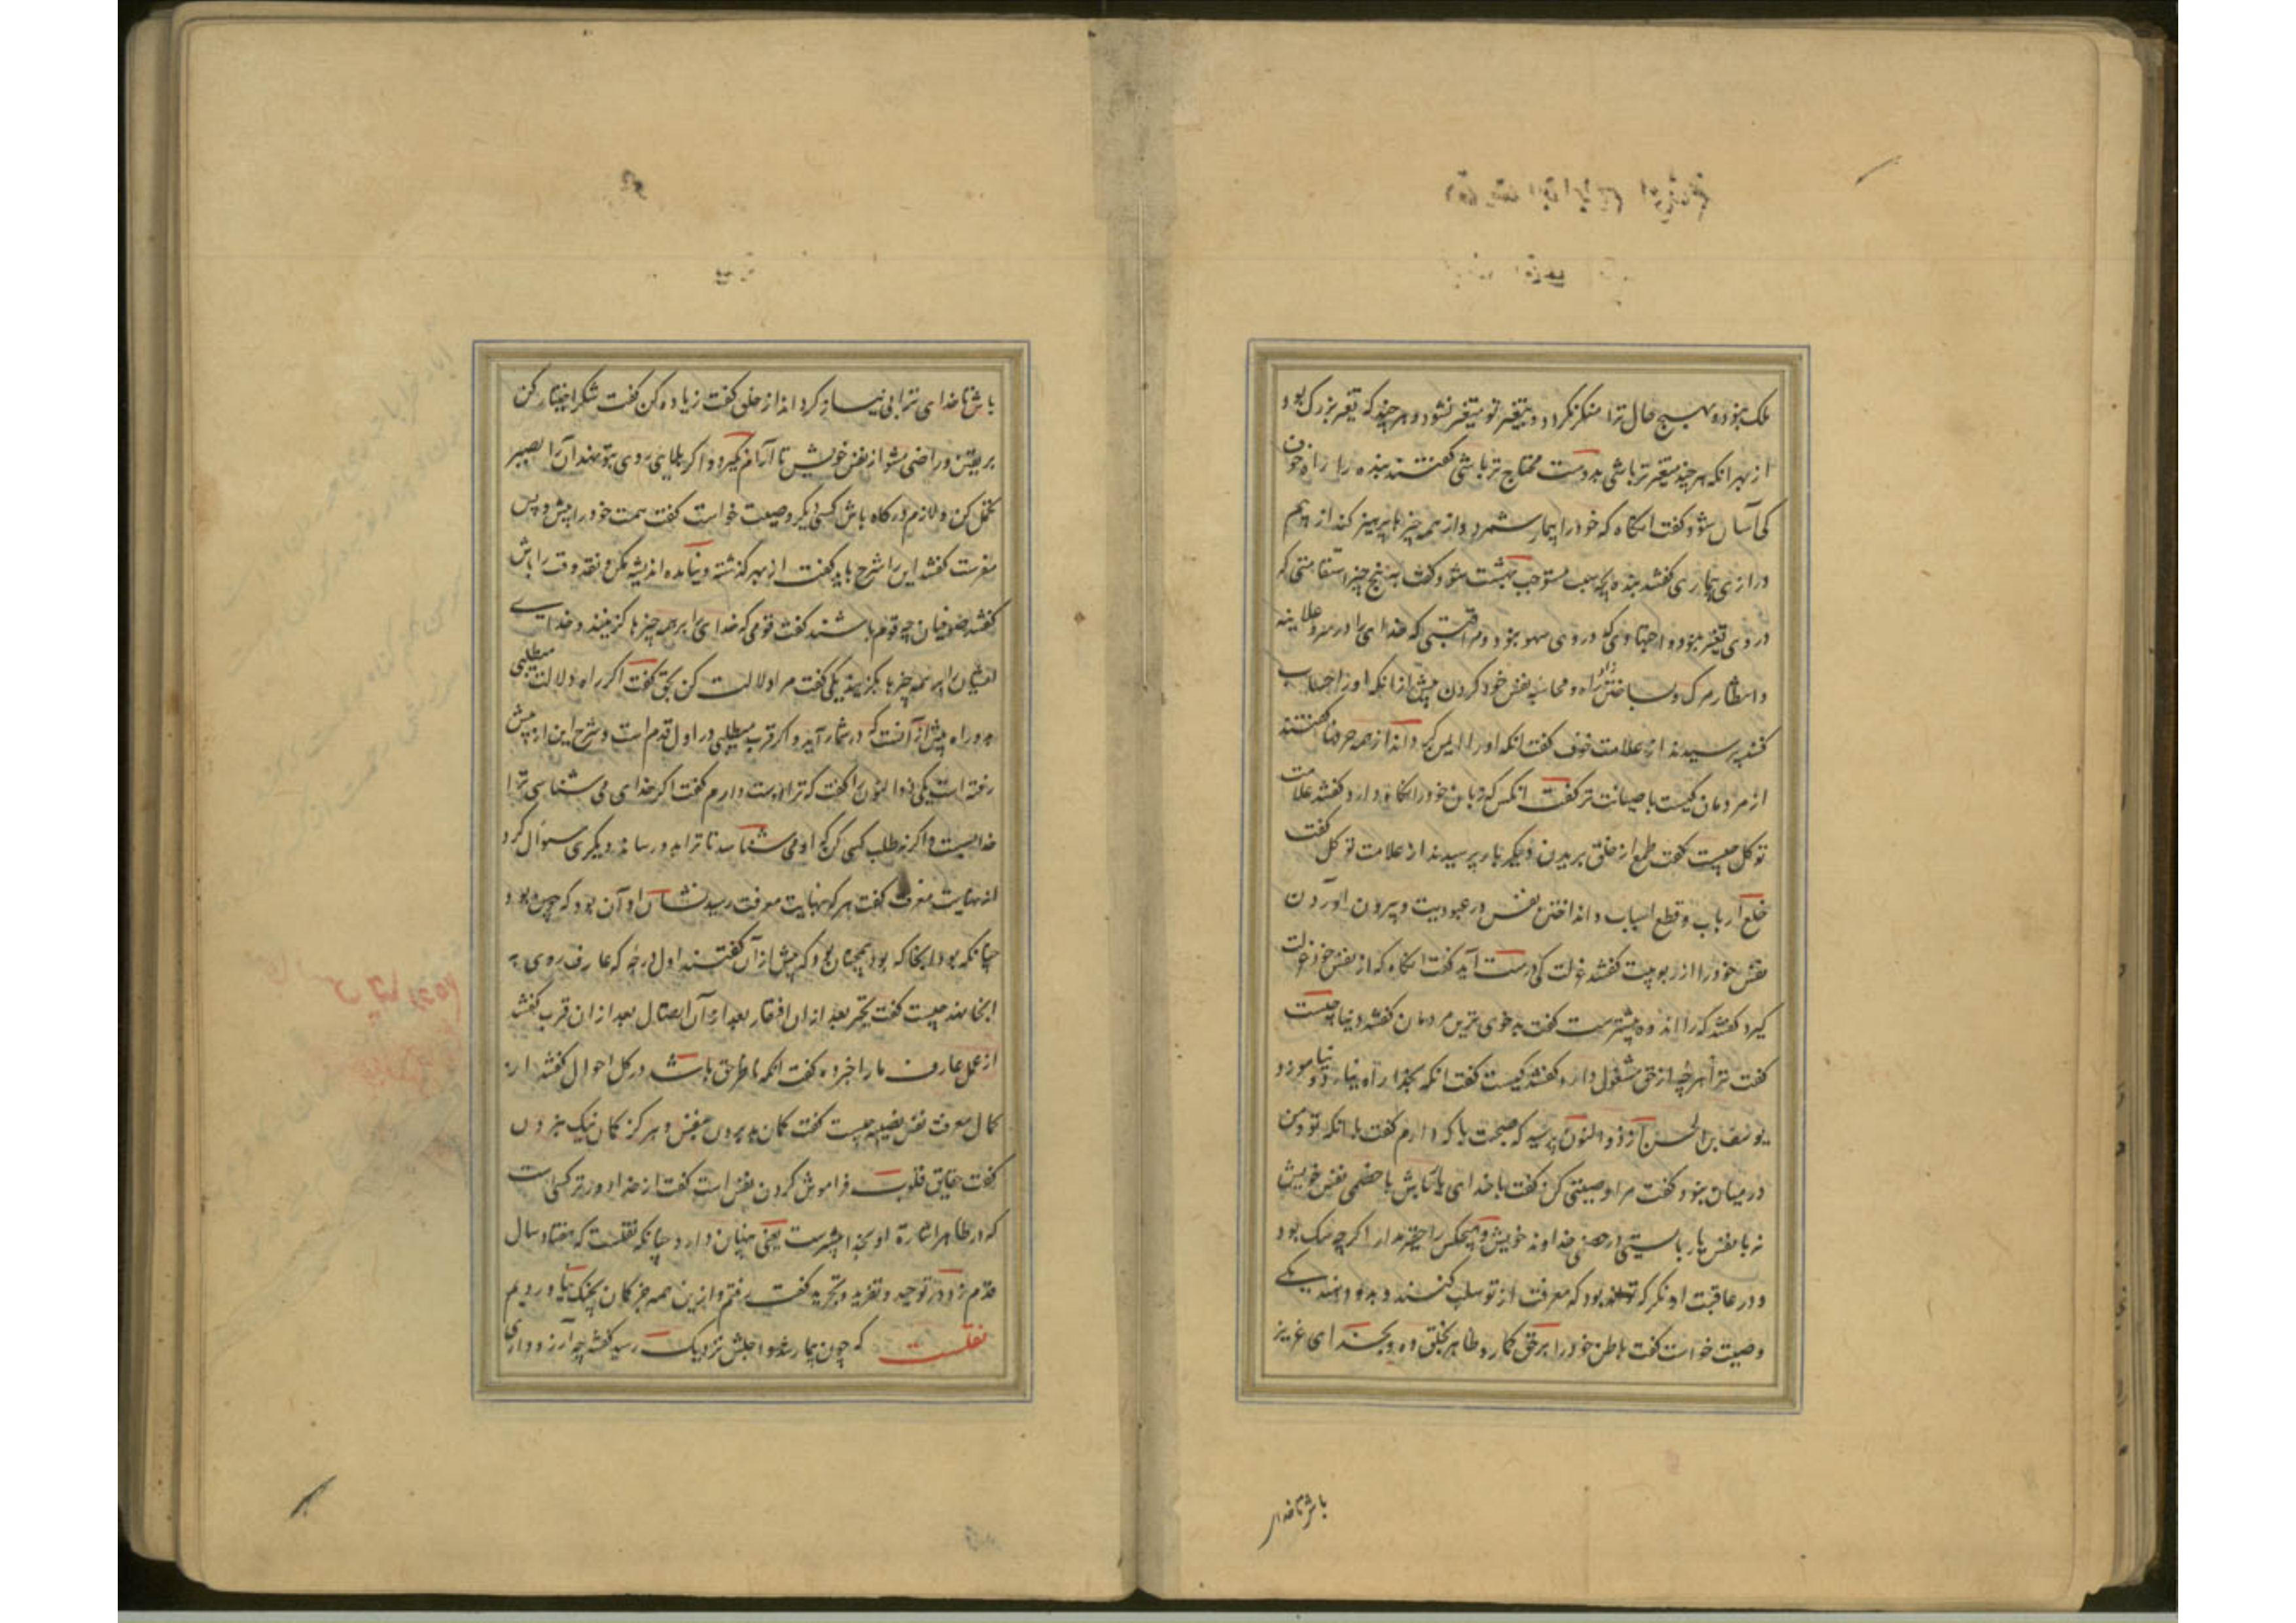 ملک نبود و هیچ حال ترا منکر نگردد و بتغیر تو متغیر نشود و هر چند که تغیر بزرگ بود
از بهر انکه هر چند متغیر تر باشی بدوست محتاج تر باشی گفتند بنده را راه خوف
کی آسان شود گفت انکاه که خود را بیمار شمرد و از همه چیزها پرهیز کند از بیم
درازی بیماری گفتند بنده بچه سبب مستوجب بهشت شود گفت به پنج چیز استقامتی که
در وی تغیر نبود و اجتهادی که در وی سهو نبود و مراقبتی که خدای را در سر و علانیه
و انتظار مرگ و بساختن زاد راه و محاسبه نفس خود کردن پیش از انکه او را حساب
کنند پرسیدند از علامت خوف گفت انکه او را ایمن کرداند از همه خوفها گفتند
از مردمان کیست با صیانت تر گفت انکس که زبان خود را نگاه دارد گفتند علامت
توکل چیست گفت طمع از خلق بریدن دیگر بار پرسیدند از علامت توکل گفت
خلع ارباب و قطع اسباب و انداختن نفس در عبودیت و بیرون آوردن
نفس خود را از ربوبیت گفتند عزلت کی درست آید گفت انکاه که از نفس خود عزلت
گیرد گفتند که را اندوه بیشترست گفت بدخوی ترین مردمان گفتند دنیا چیست
گفت ترا هر چه از حق مشغول دارد گفتند کیست گفت انکه بخدا راه نیابد و نیاموزد
یوسف بن الحسن از ذوالنون پرسید که صحبت با که دارم گفت با انکه تو و من
در میان نبود و گفت مرا وصیتی کن گفت با خدای یار باش با خصمی نفس خویش
نه با نفس یار باشی در خصمی خداوند خویش و هیچکس را حقیر مدار اگر چه مشرک بود
و در عاقبت او نگر که تواند بود که معرفت از تو سلب کنند و بدو دهند یکی
وصیت خواست گفت باطن خود را بر حق گمار و ظاهر بخلق ده و بخدای عزیز
باش تا خدا
باش تا خدای ترا بی نیاز کرداند از خلق گفت زیاده کن گفت شک را اختیار مکن
بر یقین و راضی مشو از نفس خویش تا آرام نگیرد و اگر بلایی روی بتو نهد آن را بصبر
تحمل کن و لازم درگاه باش کسی دیگر وصیت خواست گفت همت خود را پیش و پس
مفرست گفتند این را شرح باید گفت از هر چه گذشته و نیامده اندیشه مکن و نقد وقت را باش
گفتند صوفیان چه قوم باشند گفت قومی که خدای را بر همه چیزها گزینند و خدای
ایشان را بر همه چیزها بگزیند یکی گفت مرا دلالت کن بحق گفت اگر راه دلالت میطلبی
بدو راه بیش از آنست که در شمار آید و اگر قرب میطلبی در اول قدم است و شرح این از پیش
رفته است یکی ذوالنون را گفت که ترا دوست دارم گفت اگر خدای می شناسی ترا
خدا بس است و اگر نه طلب کسی کن که او می شناسد تا ترا بدو رساند دیگری سوال کرد
از نهایت معرفت گفت هر که بنهایت معرفت رسید نشان او آن بود که چون بود
چنانکه بود آنجا که بود همچنان بود که پیش از آن گفتند اول درجه که عارف روی به
انجا نهد چیست گفت تحیر بعد از ان افتقار بعد از آن اتصال بعد از ان قرب گفتند
از عمل عارف ما را خبر ده گفت انکه ناظر حق باشد در کل احوال گفتند از
کمال معرفت نفس نصیبه چیست گفت گمان بد بردن بنفس و هرگز گمان نیک نبردن
گفت حقایق قلوب فراموش کردن نفس است گفت از خدا دورتر کسی است
که در ظاهر اشارة او بخدا بیشترست یعنی پنهان دارد چنانکه نقلست که هفتاد سال
قدم زدم در توحید و تفرید و تجرید گفت برفتم و ازین همه جز گمان بچنک نیاوردیم
نقلست که چون بیمار شد و اجلش نزدیک رسید گفتند چه آرزو داری